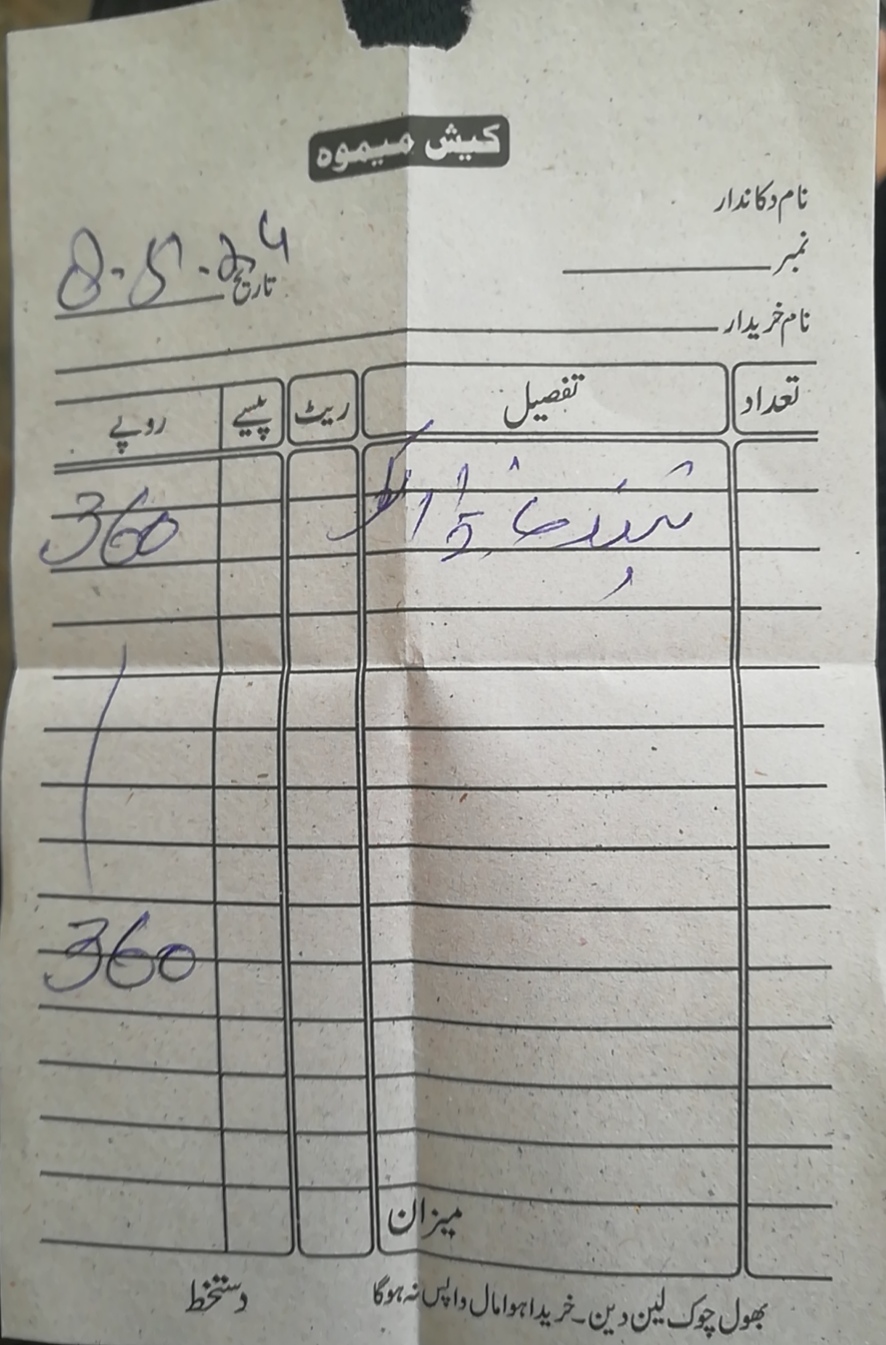 کیش میموہ
نام دکاندار
نمبر
تاریخ 8-5-24
نام خریدار
تعداد تفصیل ریٹ پیسے روپے
360
360
میزان
بھول چوک لین دین۔ خریدا ہوا مال واپس نہ ہوگا
دستخط